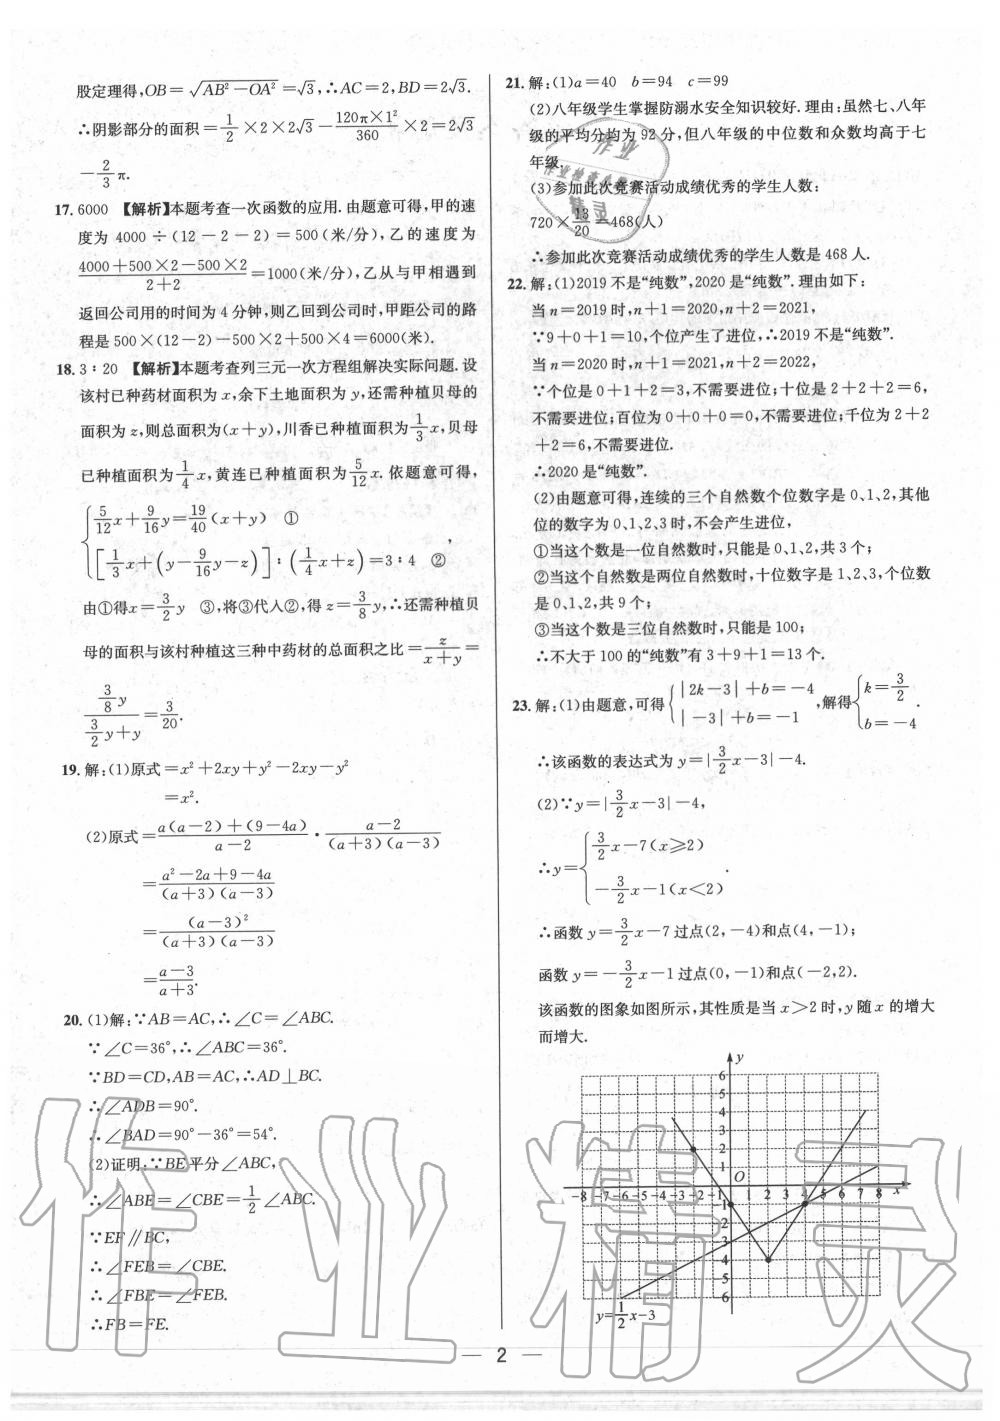 股定理得,OB=√(AB²−OA²)=√3,∴AC=2,BD=2√3.
∴阴影部分的面积=1/2×2×2√3−(120π×1²)/360×2=2√3
−2/3π.
17.6000 【解析】本题考查一次函数的应用.由题意可得,甲的速
度为 4000÷(12−2−2)=500(米/分),乙的速度为
(4000+500×2−500×2)/(2+2)=1000(米/分),乙从与甲相遇到
返回公司用的时间为 4 分钟,则乙回到公司时,甲距公司的路
程是 500×(12−2)−500×2+500×4=6000(米).
18.3∶20 【解析】本题考查列三元一次方程组解决实际问题.设
该村已种药材面积为 x,余下土地面积为 y,还需种植贝母的
面积为 z,则总面积为(x+y),川香已种植面积为1/3x,贝母
已种植面积为1/4x,黄连已种植面积为5/12x.依题意可得,
{5/12x+9/16y=19/40(x+y) ①
[1/3x+(y−9/16y−z)]∶(1/4x+z)=3∶4 ②,
由①得x=3/2y ③,将③代人②,得 z=3/8y,∴还需种植贝
母的面积与该村种植这三种中药材的总面积之比=z/(x+y)=
(3/8y)/(3/2y+y)=3/20.
19.解:(1)原式=x²+2xy+y²−2xy−y²
=x².
(2)原式=(a(a−2)+(9−4a))/(a−2)·(a−2)/((a+3)(a−3))
=(a²−2a+9−4a)/((a+3)(a−3))
=(a−3)²/((a+3)(a−3))
=(a−3)/(a+3).
20.(1)解:∵AB=AC,∴∠C=∠ABC.
∵∠C=36°,∴∠ABC=36°.
∵BD=CD,AB=AC,∴AD⊥BC.
∴∠ADB=90°.
∴∠BAD=90°−36°=54°.
(2)证明:∵BE平分∠ABC,
∴∠ABE=∠CBE=1/2∠ABC.
∵EF∥BC,
∴∠FEB=∠CBE.
∴∠FBE=∠FEB.
∴FB=FE.
21.解:(1)a=40 b=94 c=99
(2)八年级学生掌握防溺水安全知识较好.理由:虽然七、八年
级的平均分均为 92 分,但八年级的中位数和众数均高于七
年级.
(3)参加此次竞赛活动成绩优秀的学生人数:
720×13/20=468(人)
∴参加此次竞赛活动成绩优秀的学生人数是 468 人.
22.解:(1)2019 不是“纯数”,2020 是“纯数”.理由如下:
当 n=2019 时,n+1=2020,n+2=2021,
∵9+0+1=10,个位产生了进位,∴2019 不是“纯数”.
当 n=2020 时,n+1=2021,n+2=2022,
∵个位是 0+1+2=3,不需要进位;十位是 2+2+2=6,
不需要进位;百位为 0+0+0=0,不需要进位;千位为 2+2
+2=6,不需要进位.
∴2020 是“纯数”.
(2)由题意可得,连续的三个自然数个位数字是 0、1、2,其他
位的数字为 0、1、2、3 时,不会产生进位,
①当这个数是一位自然数时,只能是 0、1、2,共 3 个;
②当这个自然数是两位自然数时,十位数字是 1、2、3,个位数
是 0、1、2,共 9 个;
③当这个数是三位自然数时,只能是 100;
∴不大于 100 的“纯数”有 3+9+1=13 个.
23.解:(1)由题意,可得{|2k−3|+b=−4 |−3|+b=−1,解得{k=3/2 b=−4.
∴该函数的表达式为 y=|3/2x−3|−4.
(2)∵y=|3/2x−3|−4,
∴y={3/2x−7(x≥2)
−3/2x−1(x<2).
∴函数 y=3/2x−7 过点(2,−4)和点(4,−1);
函数 y=−3/2x−1 过点(0,−1)和点(−2,2).
该函数的图象如图所示,其性质是当 x>2 时,y 随 x 的增大
而增大.
y
6
5
4
3
2
1
O
−8−7−6−5−4−3−2−1 1 2 3 4 5 6 7 8 x
−1
−2
−3
−4
−5
−6
y=1/2x−3
— 2 —
作业
作业检查小帮手
精灵
作业精灵